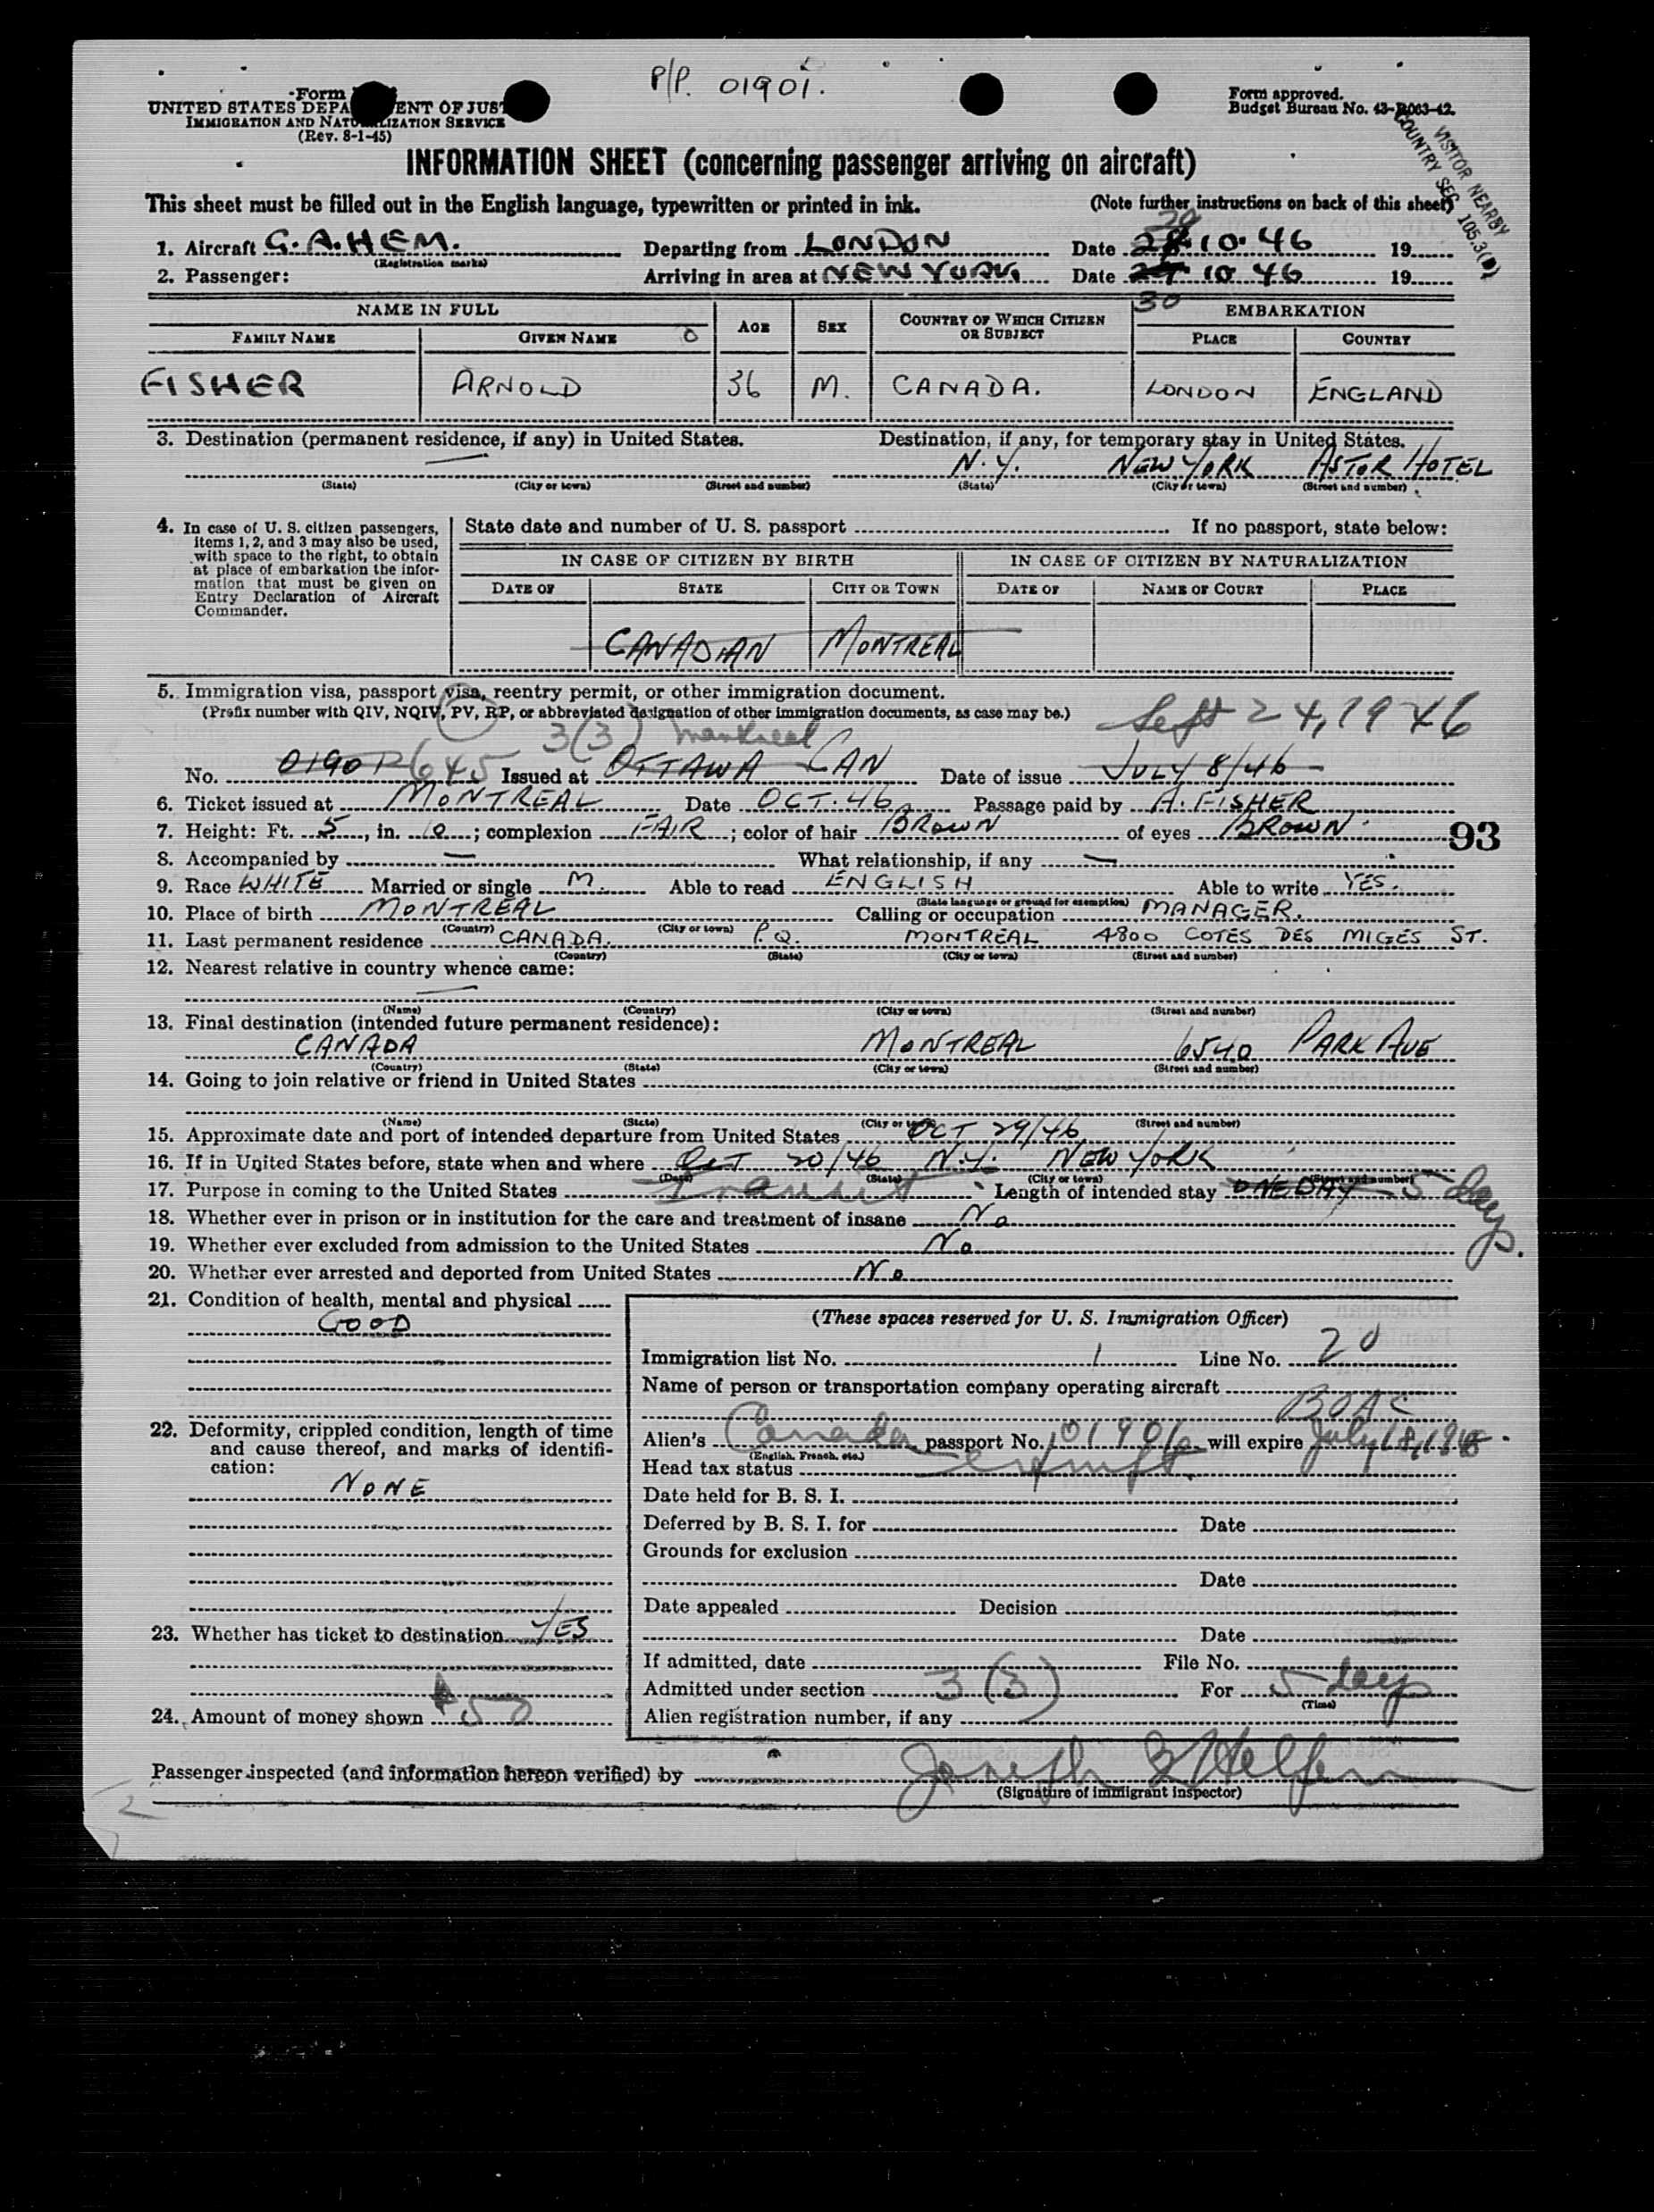 P/P. 01901.
Form
UNITED STATES DEPA ENT OF JUS
IMMIGRATION AND NATU LIZATION SERVICE
(Rev. 8-1-45)
Form approved.
Budget Bureau No. 43-R063-42.
VISITOR NEARBY
COUNTRY SEC 105.3( )
INFORMATION SHEET (concerning passenger arriving on aircraft)
This sheet must be filled out in the English language, typewritten or printed in ink. (Note further instructions on back of this sheet)
29
1. Aircraft G.A.HEM. Departing from LONDON Date 28.10.46 19
(Registration marks)
2. Passenger: Arriving in area at NEW YORK Date 10.46 19
30
NAME IN FULL AGE SEX COUNTRY OF WHICH CITIZEN OR SUBJECT EMBARKATION
FAMILY NAME GIVEN NAME PLACE COUNTRY
FISHER ARNOLD 36 M. CANADA. LONDON ENGLAND
3. Destination (permanent residence, if any) in United States. Destination, if any, for temporary stay in United States.
— N.Y. NEW YORK ASTOR HOTEL
(State) (City or town) (Street and number) (State) (City or town) (Street and number)
4. In case of U. S. citizen passengers, items 1, 2, and 3 may also be used, with space to the right, to obtain at place of embarkation the information that must be given on Entry Declaration of Aircraft Commander.
State date and number of U. S. passport If no passport, state below:
IN CASE OF CITIZEN BY BIRTH IN CASE OF CITIZEN BY NATURALIZATION
DATE OF STATE CITY OR TOWN DATE OF NAME OF COURT PLACE
CANADIAN MONTREAL
5. Immigration visa, passport visa, reentry permit, or other immigration document.
(Prefix number with QIV, NQIV, PV, RP, or abbreviated designation of other immigration documents, as case may be.) Sept 24, 1946
3(3) Montreal
No. 01901 645 Issued at OTTAWA CAN Date of issue JULY 8/46
6. Ticket issued at MONTREAL Date OCT. 46 Passage paid by A. FISHER
7. Height: Ft. 5, in. 10; complexion FAIR; color of hair BROWN of eyes BROWN
93
8. Accompanied by — What relationship, if any —
9. Race WHITE Married or single M. Able to read ENGLISH Able to write YES.
(State language or ground for exemption)
10. Place of birth MONTREAL Calling or occupation MANAGER.
(Country) (City or town)
11. Last permanent residence CANADA. P.Q. MONTREAL 4800 COTES DES MIGES ST.
(Country) (State) (City or town) (Street and number)
12. Nearest relative in country whence came:
—
(Name) (Country) (City or town) (Street and number)
13. Final destination (intended future permanent residence):
CANADA MONTREAL 6540 PARK AVE
(Country) (State) (City or town) (Street and number)
14. Going to join relative or friend in United States
(Name) (State) (City or town) (Street and number)
15. Approximate date and port of intended departure from United States OCT 29/46
16. If in United States before, state when and where OCT 20/46 N.Y. NEW YORK
(Date) (State) (City or town) (Street and number)
17. Purpose in coming to the United States Transit Length of intended stay ONE DAY 5 days.
18. Whether ever in prison or in institution for the care and treatment of insane No
19. Whether ever excluded from admission to the United States No
20. Whether ever arrested and deported from United States No
21. Condition of health, mental and physical
GOOD
22. Deformity, crippled condition, length of time and cause thereof, and marks of identification:
NONE
23. Whether has ticket to destination YES
24. Amount of money shown $50
(These spaces reserved for U. S. Immigration Officer)
Immigration list No. 1 Line No. 20
Name of person or transportation company operating aircraft
BOAC
Alien's Canada passport No. 01901 will expire July 18, 1948.
(English, French, etc.)
Head tax status exempt.
Date held for B. S. I.
Deferred by B. S. I. for Date
Grounds for exclusion
Date
Date appealed Decision
Date
If admitted, date File No.
Admitted under section 3(3) For 5 days
(Time)
Alien registration number, if any
Passenger inspected (and information hereon verified) by Joseph
(Signature of immigrant inspector)